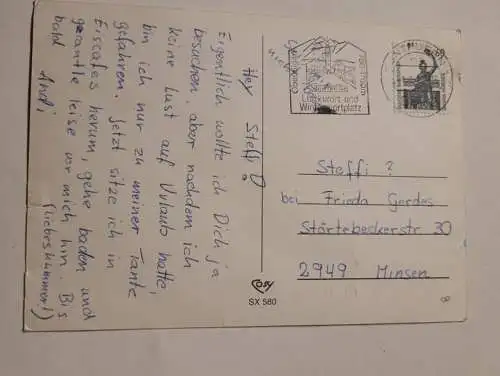 Hey Steffi!
Eigentlich wollte ich Dich ja
besuchen, aber nachdem ich
keine Lust auf Urlaub hatte,
bin ich nur zu meiner Tante
gefahren. Jetzt sitze ich in
Eiscafes herum, gehe baden und
leise vor mich hin. Bis
bald (Liebeskummer!)
Andi
Luftkurort und
Wintersportplatz
Steffi ?
bei Frieda Gerdes
Störtebeckerstr 30
2949 Minsen
cosy
SX 580